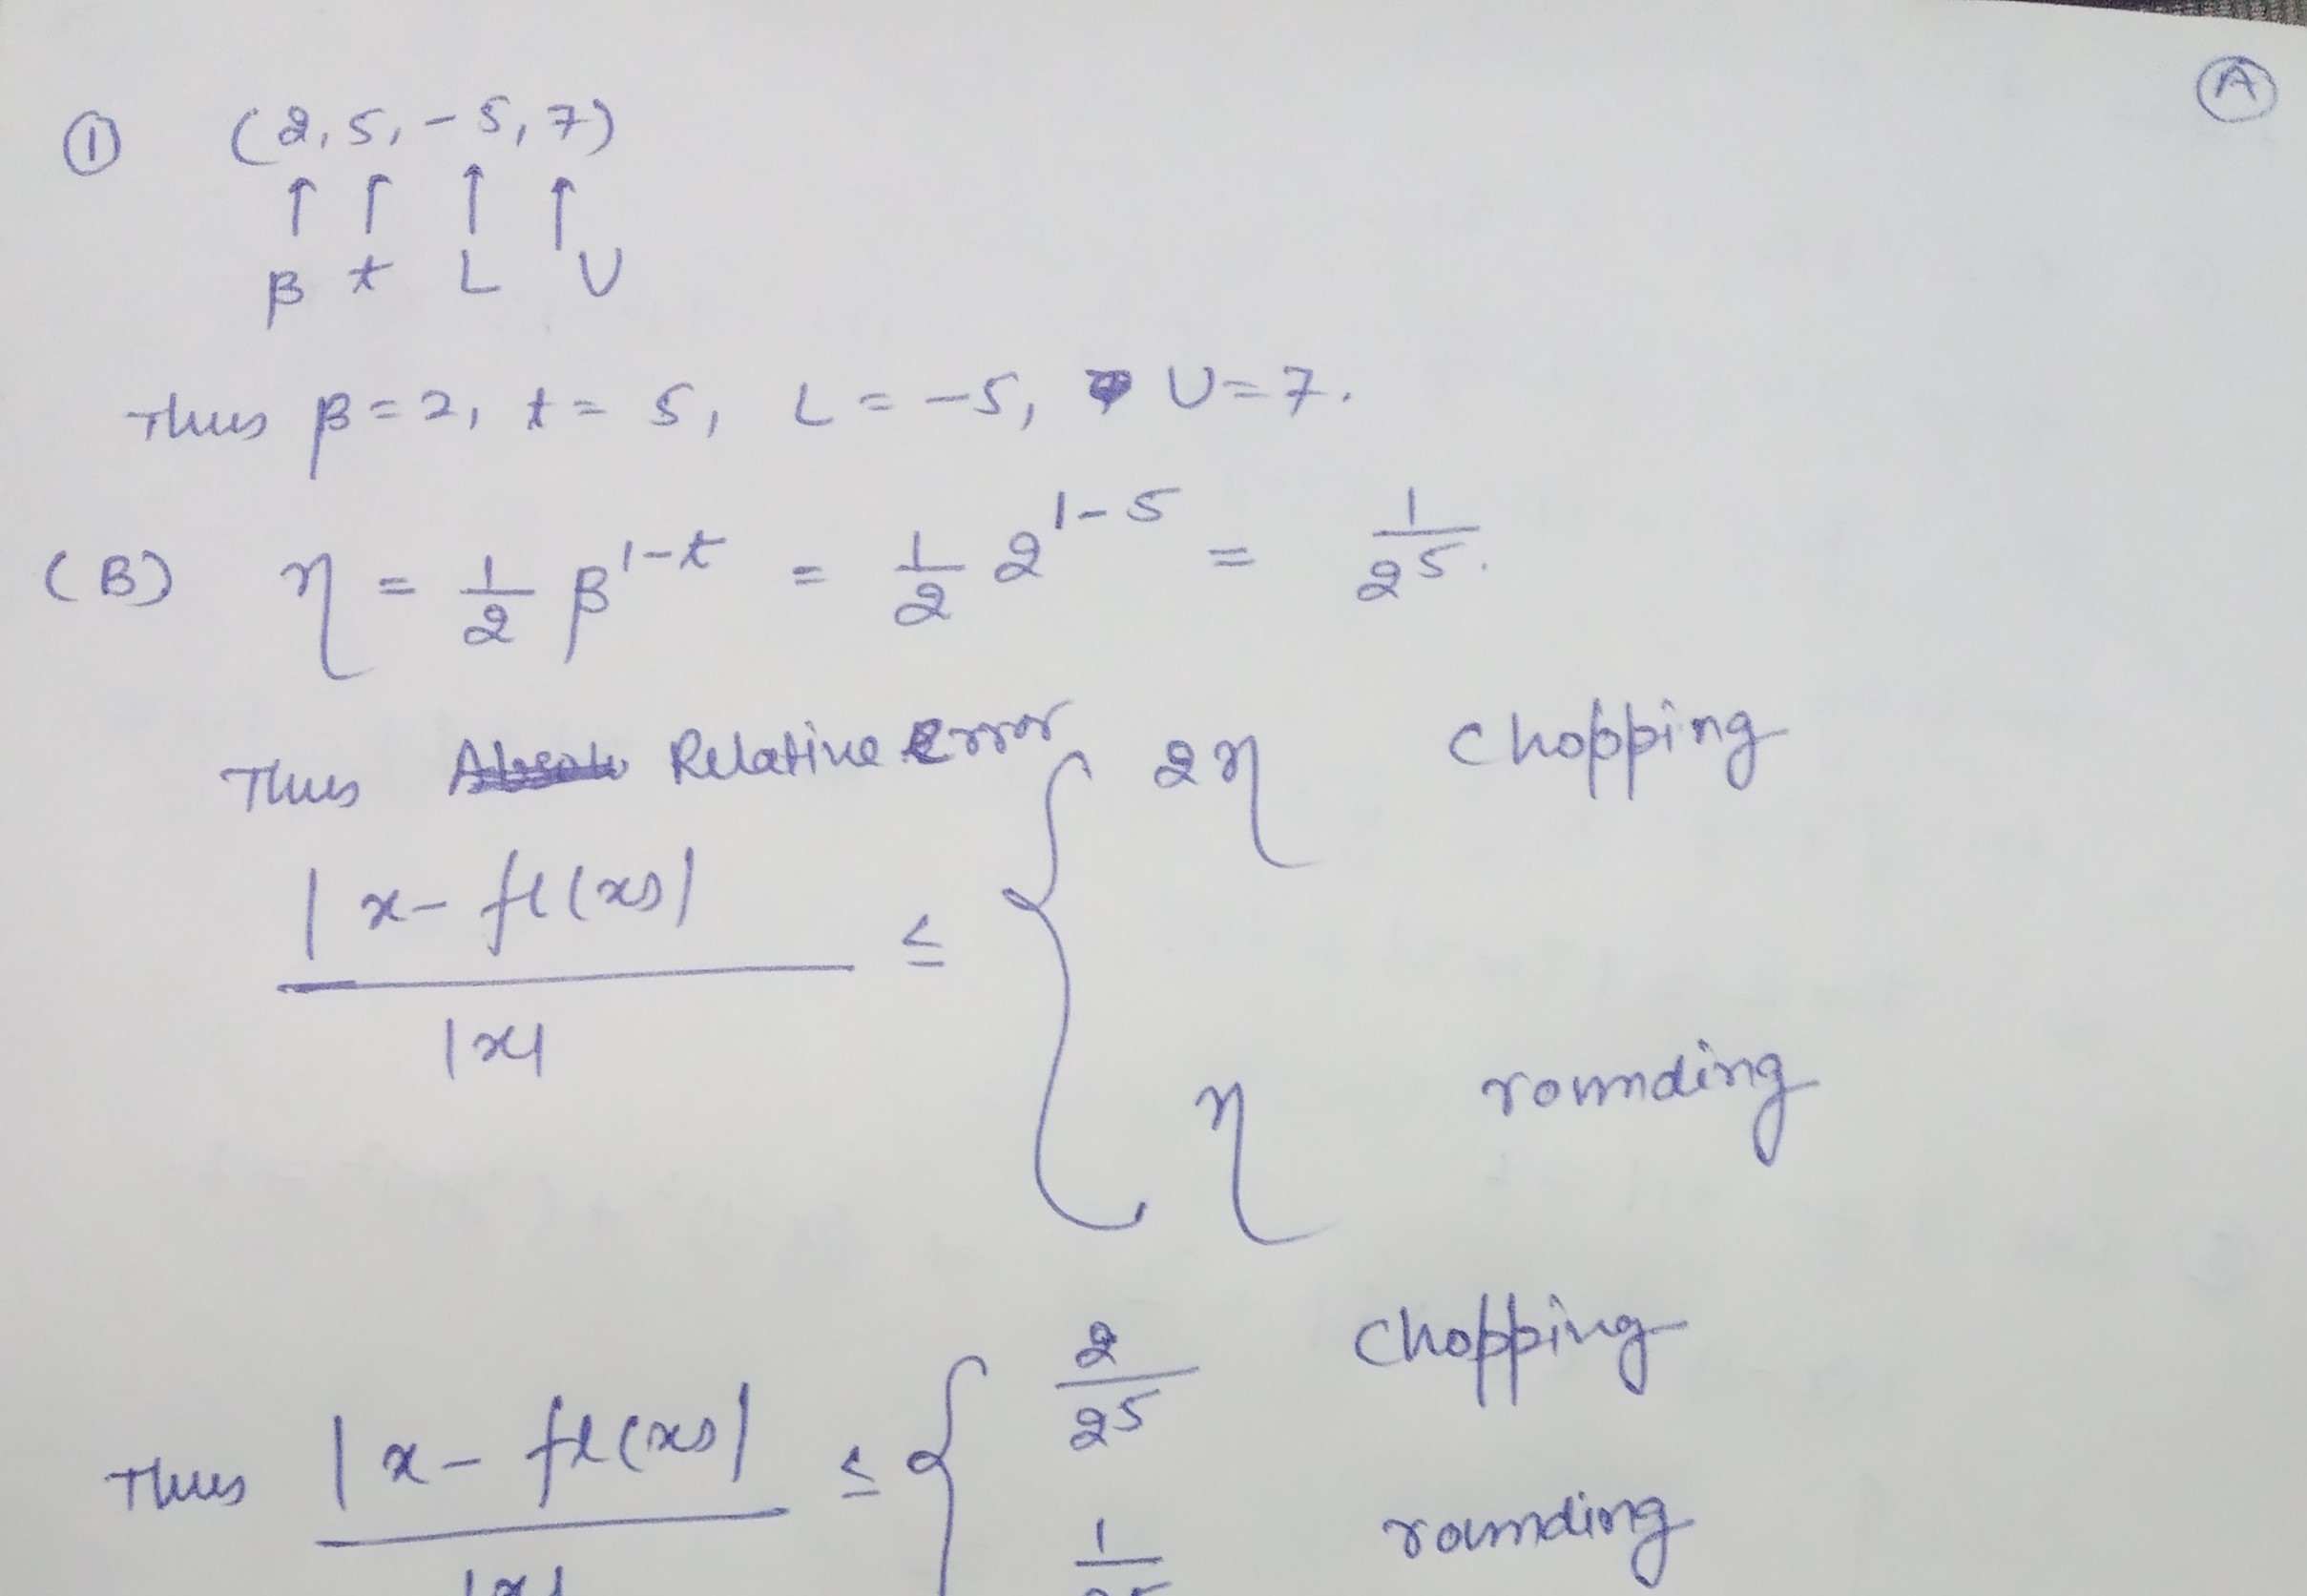 Ⓐ
① (2, 5, -5, 7)
↑ ↑ ↑ ↑
β t L U
Thus β=2, t= 5, L = -5, U=7.
(B) η = 1/2 β^(1-t) = 1/2 2^(1-5) = 1/2^5.
Thus Relative Error
|x - fl(x)| / |x| ≤ { 2η chopping
η rounding
Thus |x - fl(x)| / |x| ≤ { 2/2^5 chopping
1/2^5 rounding